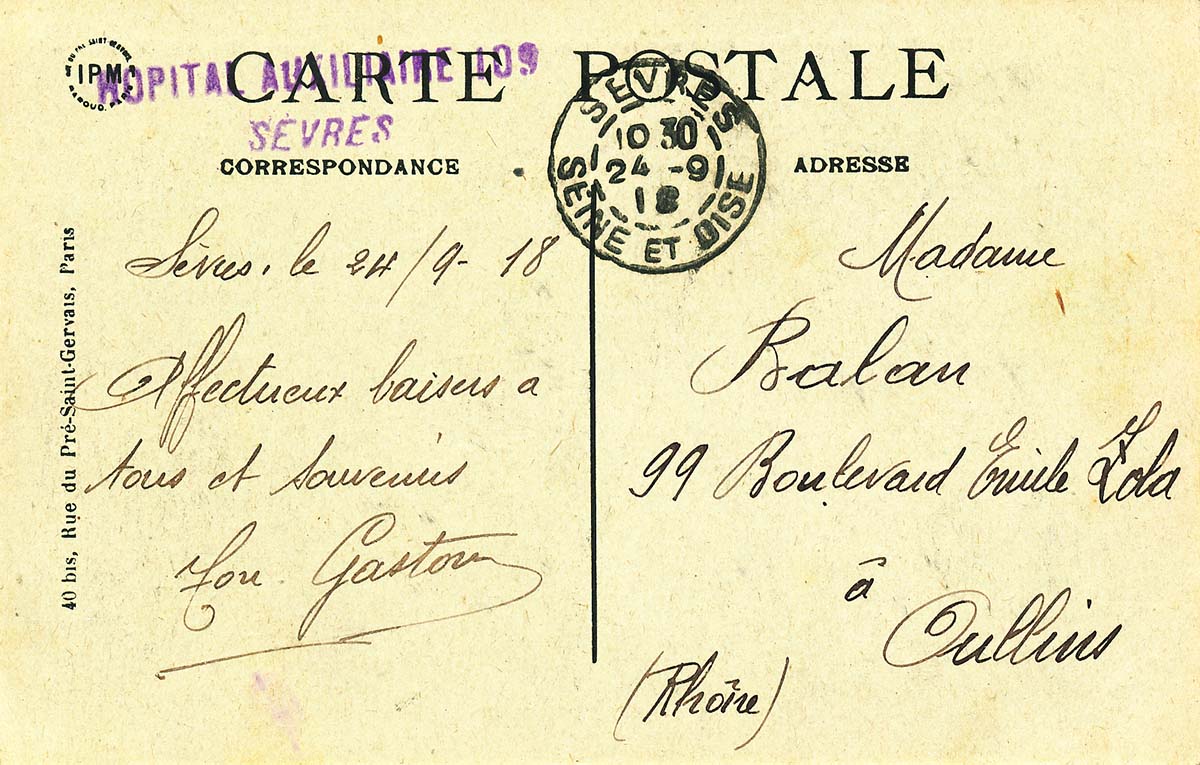 CARTE POSTALE
IPM
HOPITAL AUXILIAIRE 109
SÈVRES
CORRESPONDANCE
ADRESSE
SEVRES
10 30
24 -9
18
SEINE ET OISE
40 bis, Rue du Pré-Saint-Gervais, Paris
Sèvres, le 24/9-18
Affectueux baisers a
tous et souvenirs
Ton Gaston
Madame
Balan
99 Boulevard Emile Zola
à
Oullins
(Rhône)